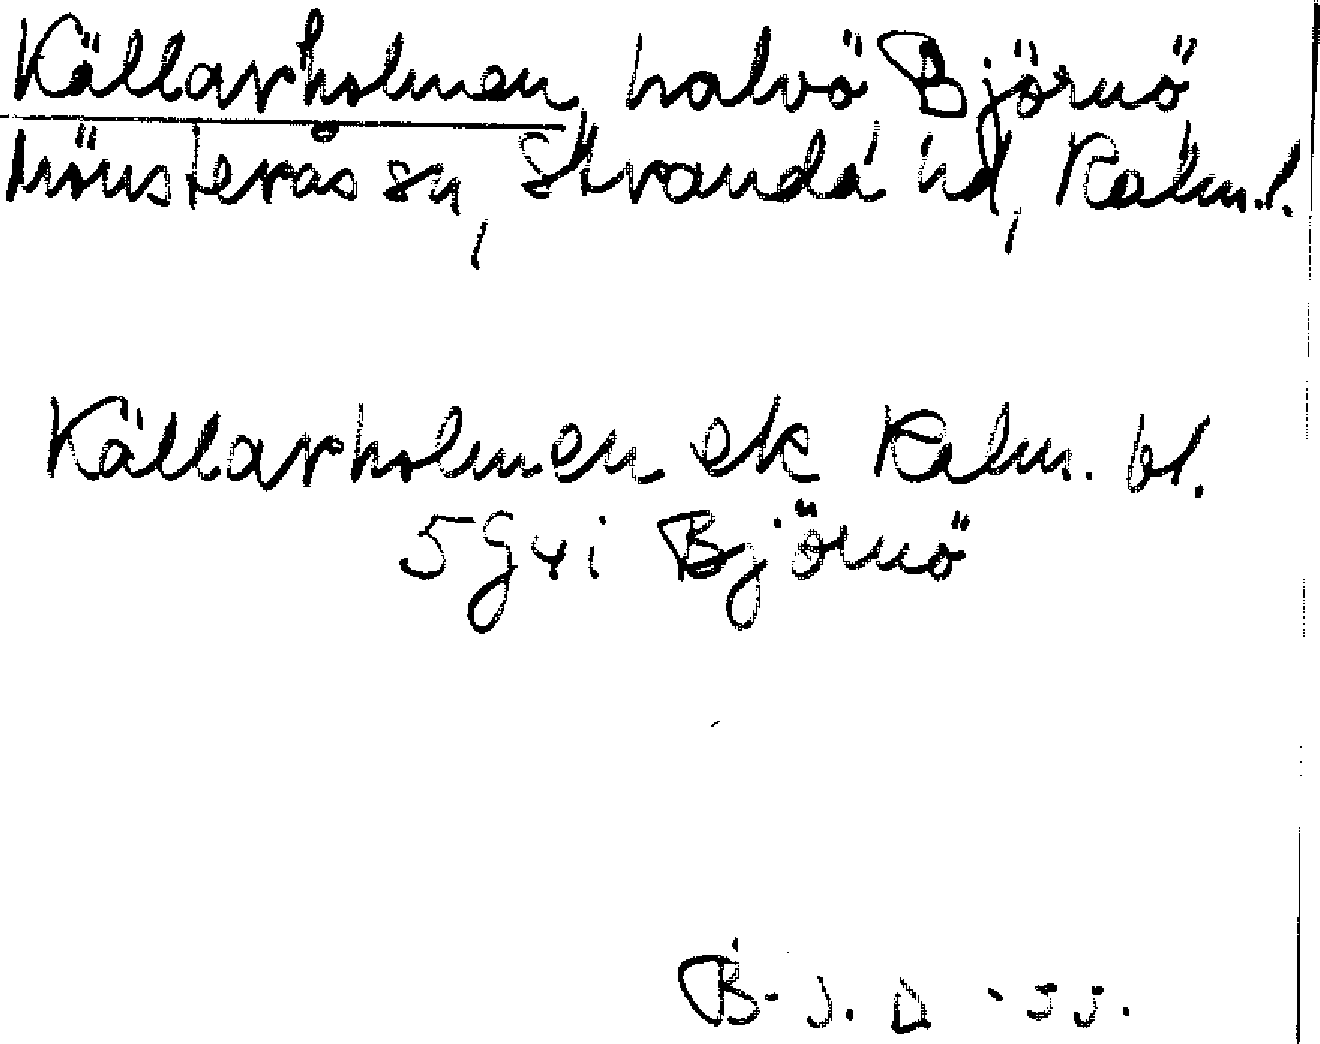 Källarholmen, halvö Björnö
Mönsterås sn, Stranda hd, Kalm.l.
Källarholmen ek Kalm. bl.
5 G y i Björnö
B. J. D -55.